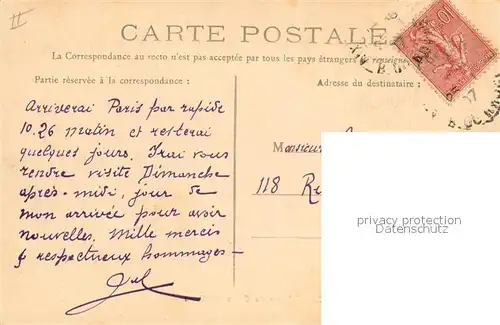 II
CARTE POSTALE
La Correspondance au recto n'est pas acceptée par tous les pays étrangers
Partie réservée à la correspondance :
Adresse du destinataire :
10
Arriverai Paris par rapide
10.26 matin et resterai
quelques jours. Irai vous
rendre visite Dimanche
après-midi, jour de
mon arrivée pour avoir
nouvelles. Mille mercis
& respectueux hommages –
Monsieur
118
privacy protection
Datenschutz